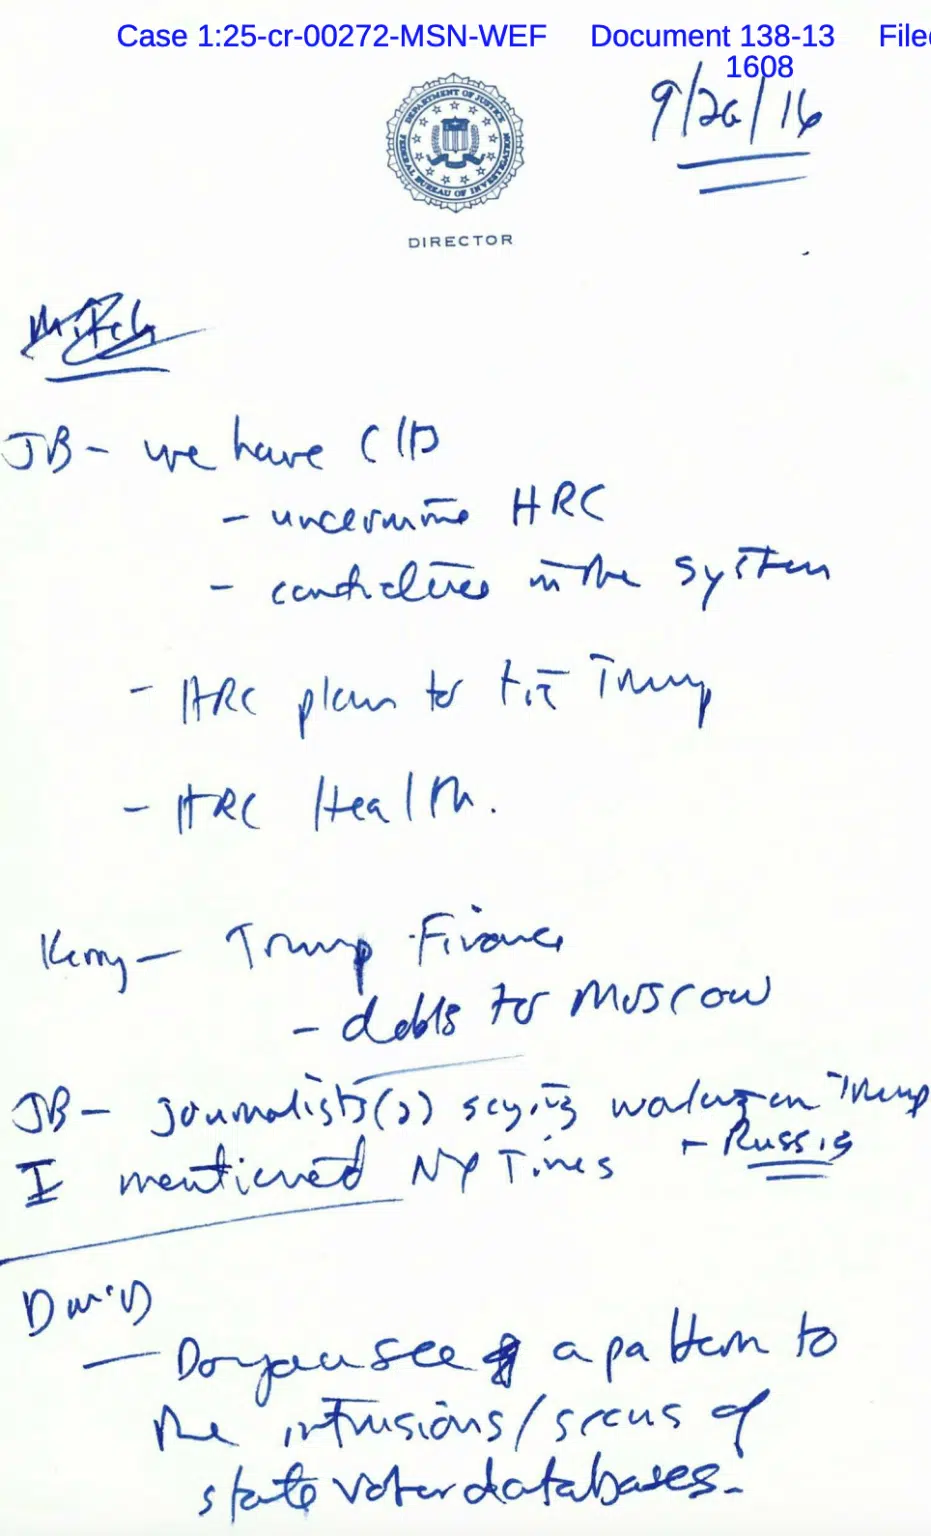 Case 1:25-cr-00272-MSN-WEF Document 138-13 Filed
1608
9/26/16
DEPARTMENT OF JUSTICE
FEDERAL BUREAU OF INVESTIGATION
DIRECTOR
JB - we have CIA
- undermine HRC
- candidates in the system
- HRC plan to tie Trump
- HRC Health.
Kerry - Trump Finance
- debts to Moscow
JB - journalists(s) saying working on Trump
+ Russia
I mentioned NY Times
- Do you see a pattern to
the intrusions/scans of
state voter databases.